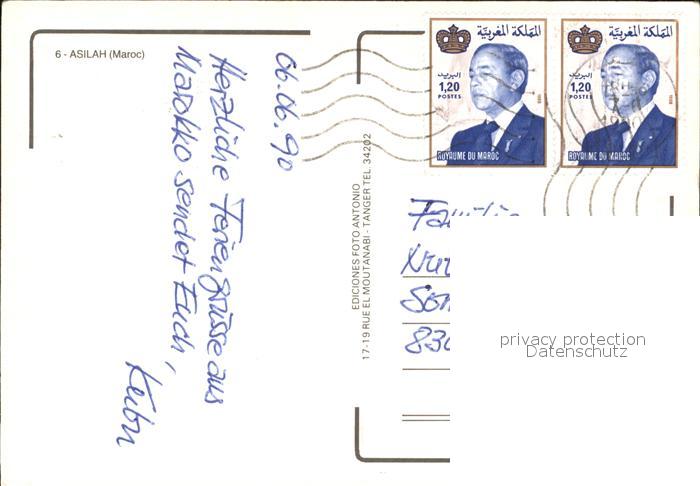 6 - ASILAH (Maroc)
06.06.90
Herzliche Feriengrüsse aus
Marokko sendet Euch,
EDICIONES FOTO ANTONIO
17-19 RUE EL MOUTANABI - TANGER TEL. 34202
المملكة المغربية
البريد
1,20
POSTES
ROYAUME DU MAROC
المملكة المغربية
البريد
1,20
POSTES
ROYAUME DU MAROC
Familie
830
privacy protection
Datenschutz